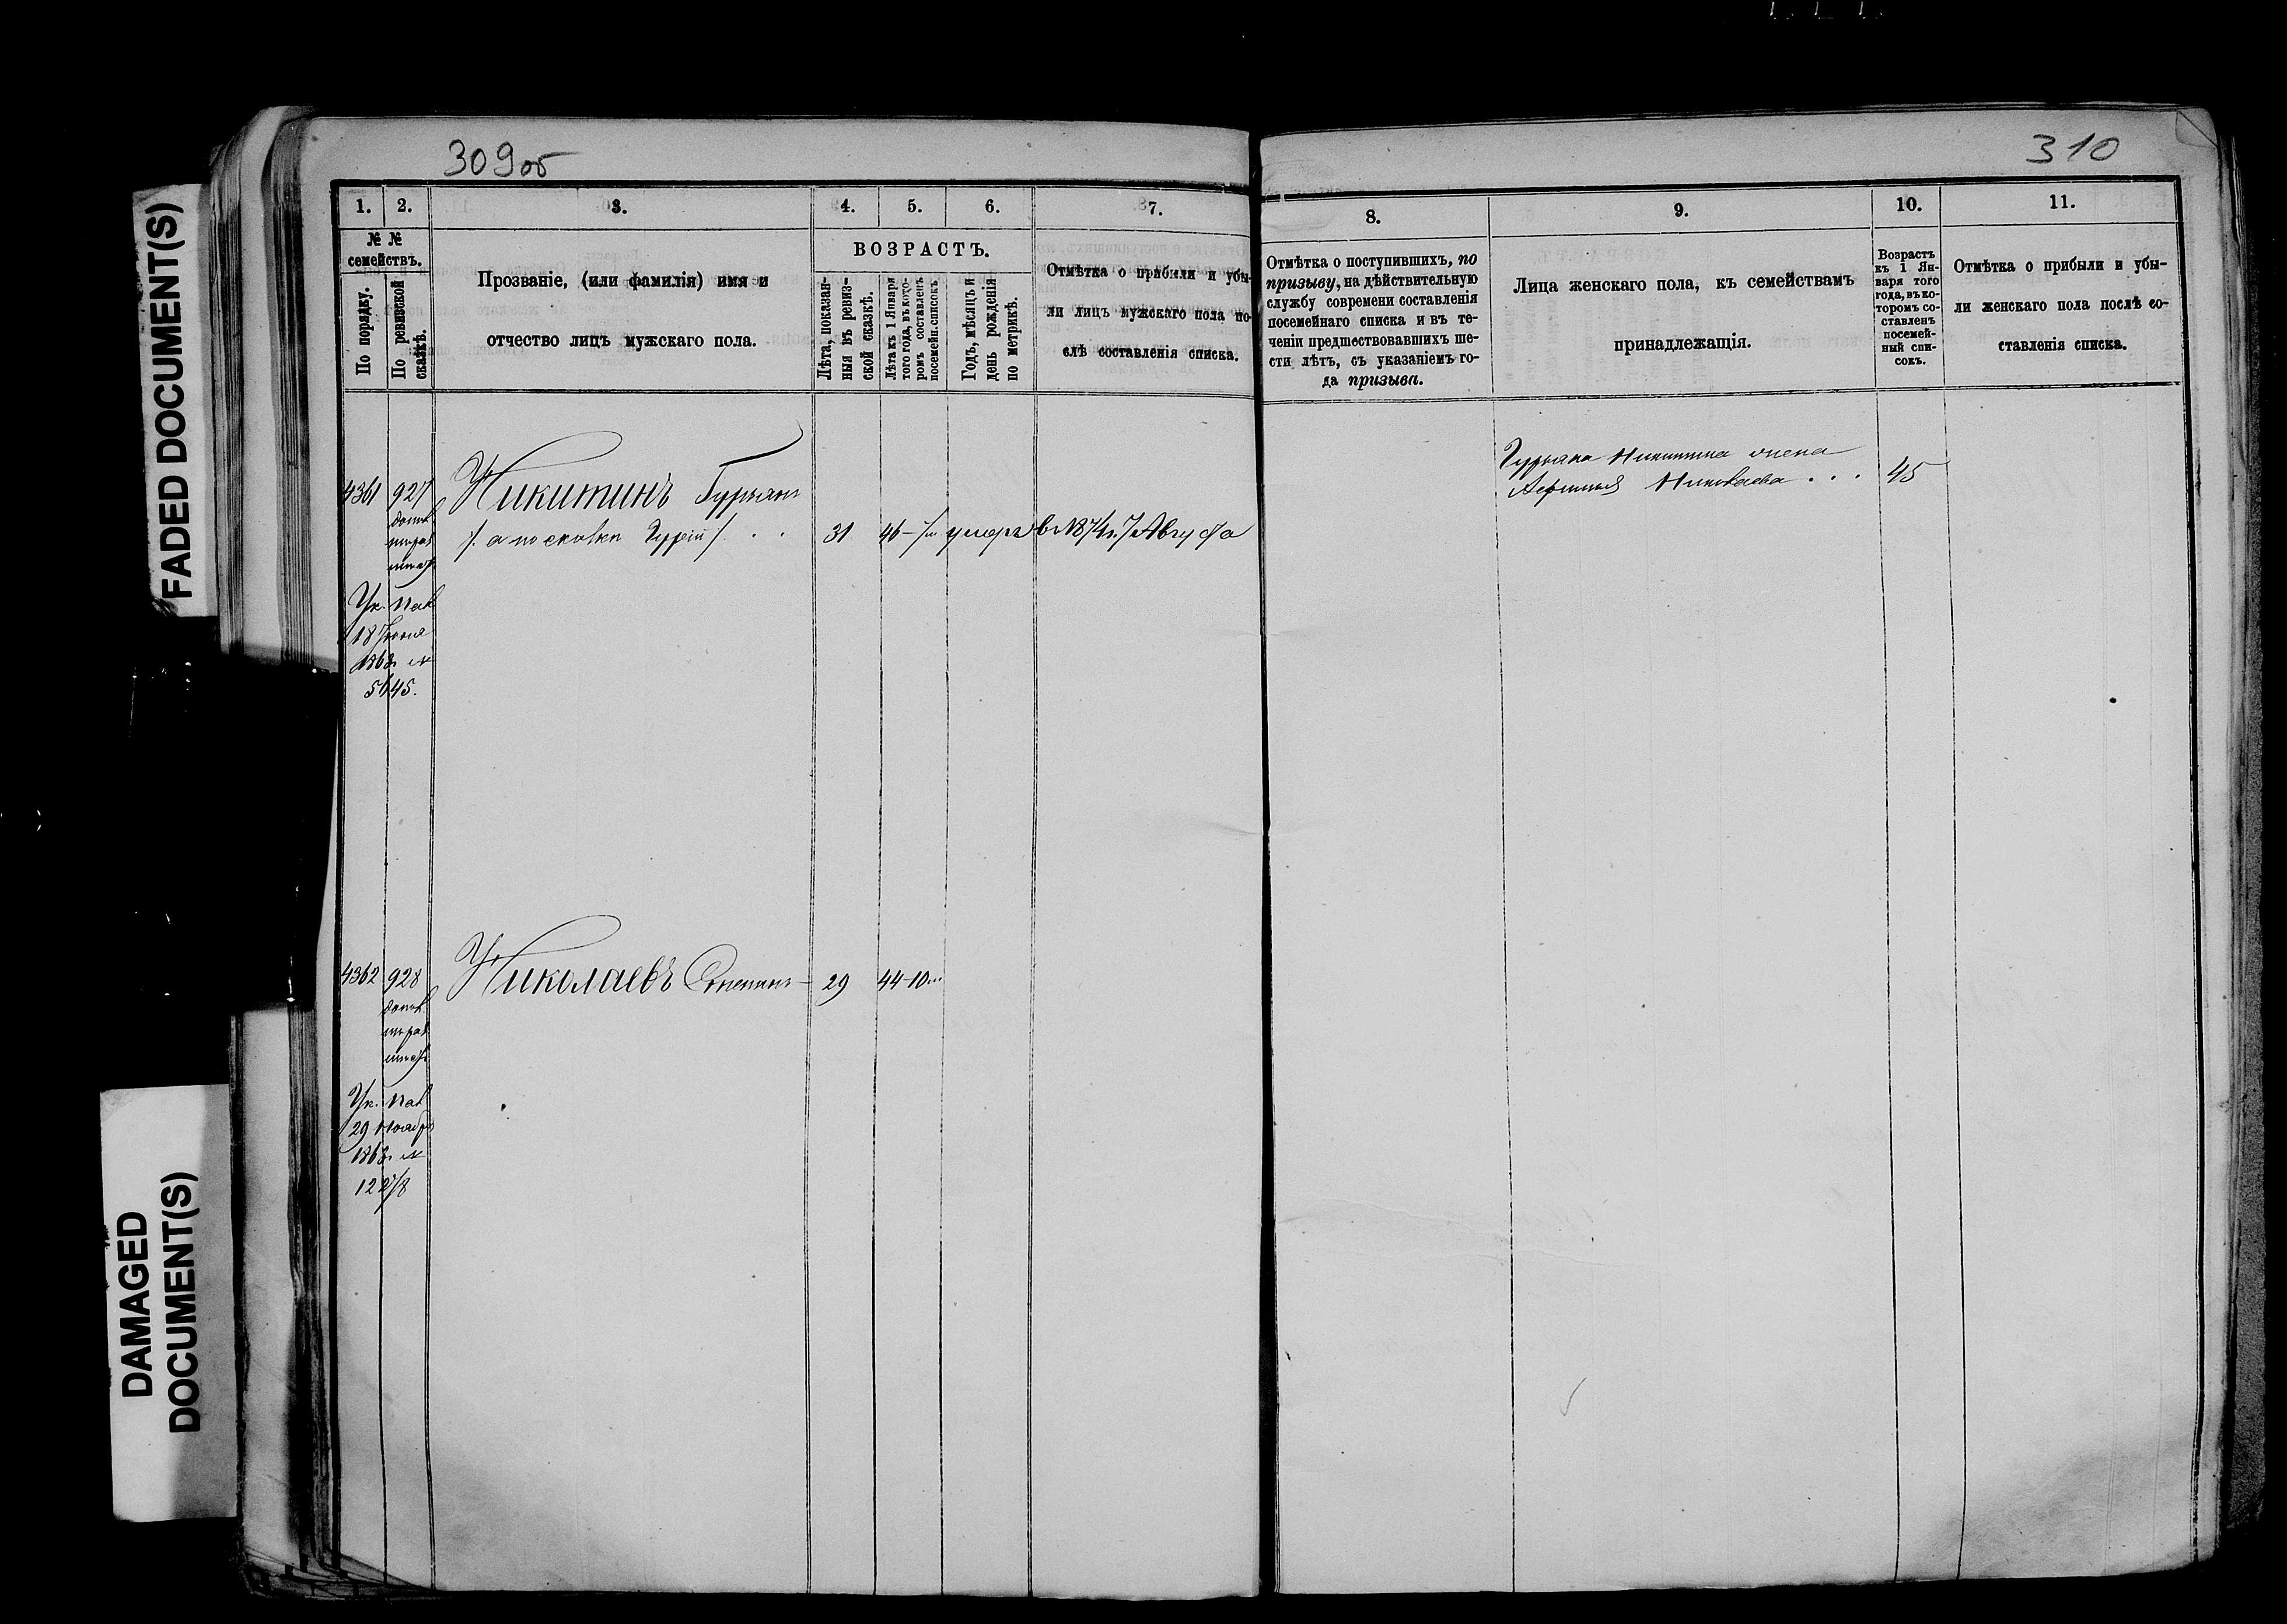 309об
310
FADED DOCUMENT(S)
DAMAGED
DOCUMENT(S)
1.
2.
3.
4.
5.
6.
7.
№ №
семействъ.
По порядку.
По ревизской
сказкѣ.
Прозваніе, (или фамилія) имя и
отчество лицъ мужскаго пола.
ВОЗРАСТЪ.
Лѣта, показан-
ныя въ ревиз-
ской сказкѣ.
Лѣта къ 1 Января
того года, въ кото-
ромъ составленъ
посемейн. списокъ
Годъ, мѣсяцъ и
день рожденія
по метрикѣ.
Отмѣтка о прибыли и убы-
ли лицъ мужскаго пола по-
слѣ составленія списка.
8.
9.
10.
11.
Отмѣтка о поступившихъ, по
призыву, на дѣйствительную
службу современи составленія
посемейнаго списка и въ те-
ченіи предшествовавшихъ ше-
сти лѣтъ, съ указаніемъ го-
да призыва.
Лица женскаго пола, къ семействамъ
принадлежащія.
Возрастъ
къ 1 Ян-
варя того
года, въ ко-
торомъ со-
ставленъ
посемей-
ный спи-
сокъ.
Отмѣтка о прибыли и убы-
ли женскаго пола послѣ со-
ставленія списка.
4361 927 Никитинъ Гурьянъ
/. а по сказкѣ Гурій / . . 31 46 - 7м умеръ в 1874 г. 7 Августа
Ук. Пал
18 Іюня
1868 г №
5645.
Гурьяна Никитина жена
Аѳимья Николаева . . . 45
4362 928 Николаевъ Степанъ - 29 44-10м
Ук. Пал
29 Ноябр
1868 г №
12278